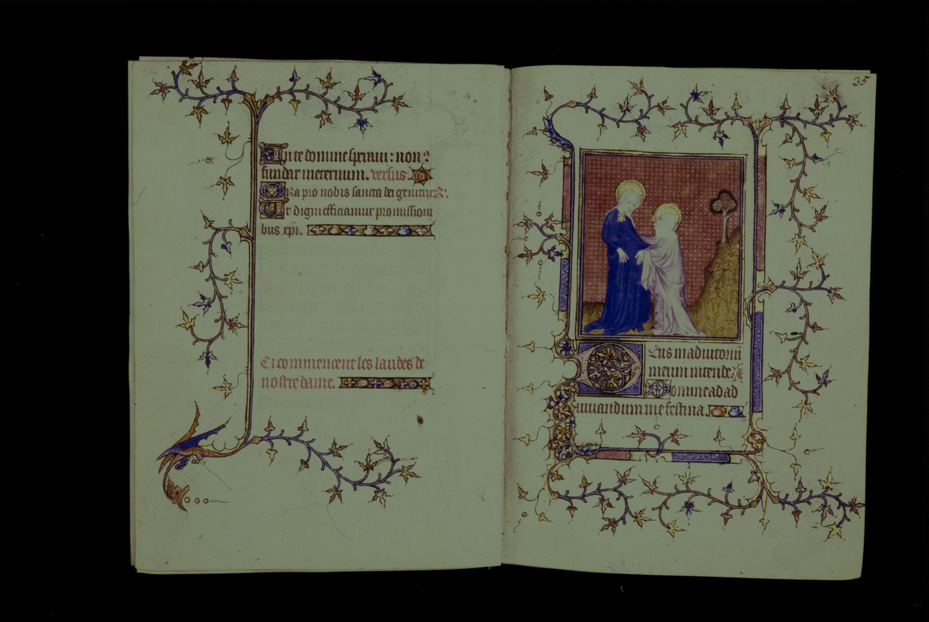 In te domine speraui: non 9
fundar in eternum. versus
Ora pro nobis sancta dei genitrix.
Ut digni efficiamur promissioni
bus xpi.
Ci commencent les laudes de
nostre dame.
35
Deus in adiutoriū
meum intende.
Domine ad ad
iuuandum me festina.